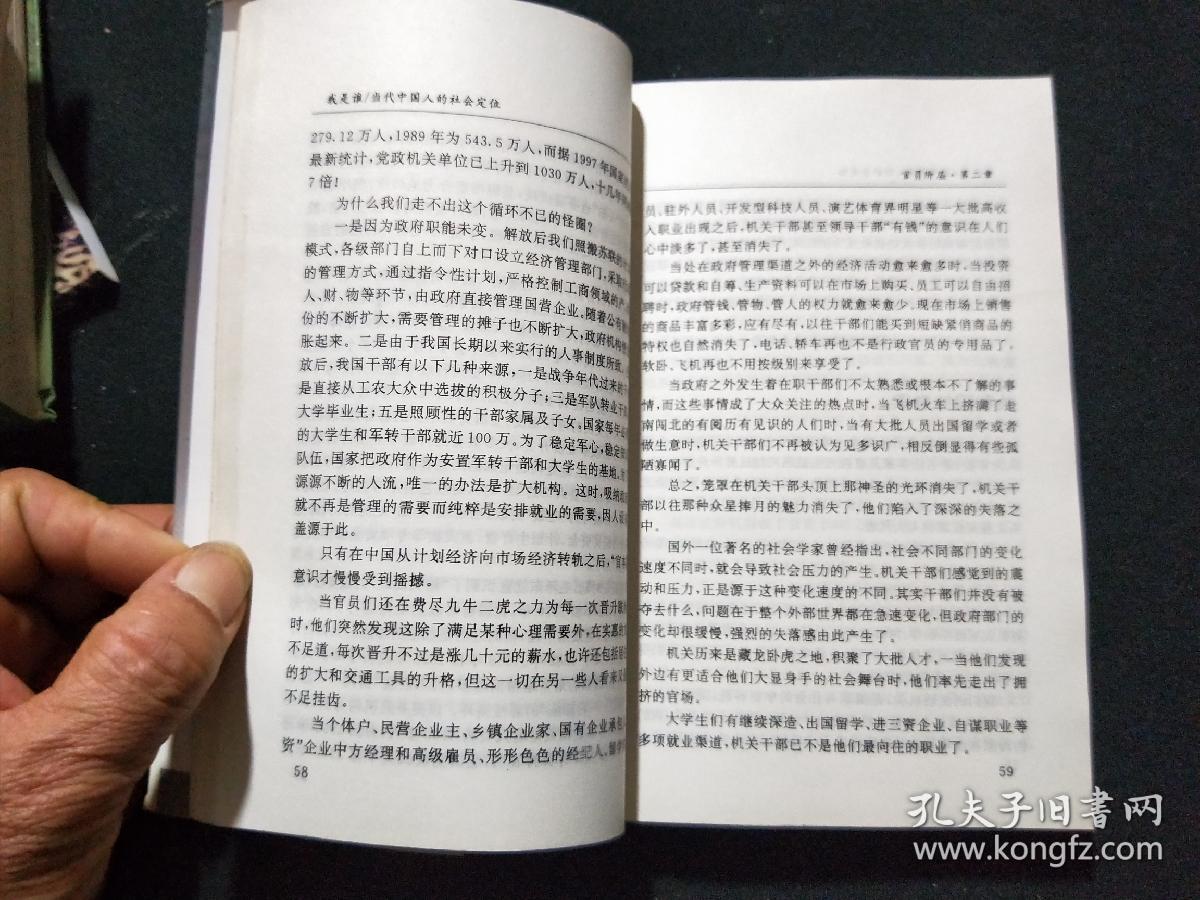 我是谁/当代中国人的社会定位
279.12万人,1989年为543.5万人,而据1997年国家
最新统计,党政机关单位已上升到1030万人,十几年
7倍!
为什么我们走不出这个循环不已的怪圈?
一是因为政府职能未变。解放后我们照搬苏联的
模式,各级部门自上而下对口设立经济管理部门,采取
的管理方式,通过指令性计划,严格控制工商领域的产
人、财、物等环节,由政府直接管理国营企业。随着公有
份的不断扩大,需要管理的摊子也不断扩大,政府机构
胀起来。二是由于我国长期以来实行的人事制度所致。
放后,我国干部有以下几种来源,一是战争年代过来的
是直接从工农大众中选拔的积极分子;三是军队转业干
大学毕业生;五是照顾性的干部家属及子女。国家每年
的大学生和军转干部就近100万。为了稳定军心,稳定
队伍,国家把政府作为安置军转干部和大学生的基地。
源源不断的人流,唯一的办法是扩大机构。这时,吸纳
就不再是管理的需要而纯粹是安排就业的需要,因人设
盖源于此。
只有在中国从计划经济向市场经济转轨之后,“官本
意识才慢慢受到摇撼。
当官员们还在费尽九牛二虎之力为每一次晋升
时,他们突然发现这除了满足某种心理需要外,在实惠
不足道,每次晋升不过是涨几十元的薪水,也许还包括居
的扩大和交通工具的升格,但这一切在另一些人看来又
不足挂齿。
当个体户、民营企业主、乡镇企业家、国有企业承包
资”企业中方经理和高级雇员、形形色色的经纪人、留学
58
官员阶层·第二章
员、驻外人员、开发型科技人员、演艺体育界明星等一大批高收
入职业出现之后,机关干部甚至领导干部“有钱”的意识在人们
心中淡多了,甚至消失了。
当处在政府管理渠道之外的经济活动愈来愈多时,当投资
可以贷款和自筹、生产资料可以在市场上购买、员工可以自由招
聘时,政府管钱、管物、管人的权力就愈来愈少。现在市场上销售
的商品丰富多彩,应有尽有,以往干部们能买到短缺紧俏商品的
特权也自然消失了,电话、轿车再也不是行政官员的专用品了。
软卧、飞机再也不用按级别来享受了。
当政府之外发生着在职干部们不太熟悉或根本不了解的事
情,而这些事情成了大众关注的热点时,当飞机火车上挤满了走
南闯北的有阅历有见识的人们时,当有大批人员出国留学或者
做生意时,机关干部们不再被认为见多识广,相反倒显得有些孤
陋寡闻了。
总之,笼罩在机关干部头顶上那神圣的光环消失了,机关干
部以往那种众星捧月的魅力消失了,他们陷入了深深的失落之
中。
国外一位著名的社会学家曾经指出,社会不同部门的变化
速度不同时,就会导致社会压力的产生。机关干部们感觉到的震
动和压力,正是源于这种变化速度的不同。其实干部们并没有被
夺去什么,问题在于整个外部世界都在急速变化,但政府部门的
变化却很缓慢,强烈的失落感由此产生了。
机关历来是藏龙卧虎之地,积聚了大批人才,一当他们发现
外边有更适合他们大显身手的社会舞台时,他们率先走出了拥
挤的官场。
大学生们有继续深造、出国留学、进三资企业、自谋职业等
多项就业渠道,机关干部已不是他们最向往的职业了。
59
孔夫子旧书网
www.kongfz.com